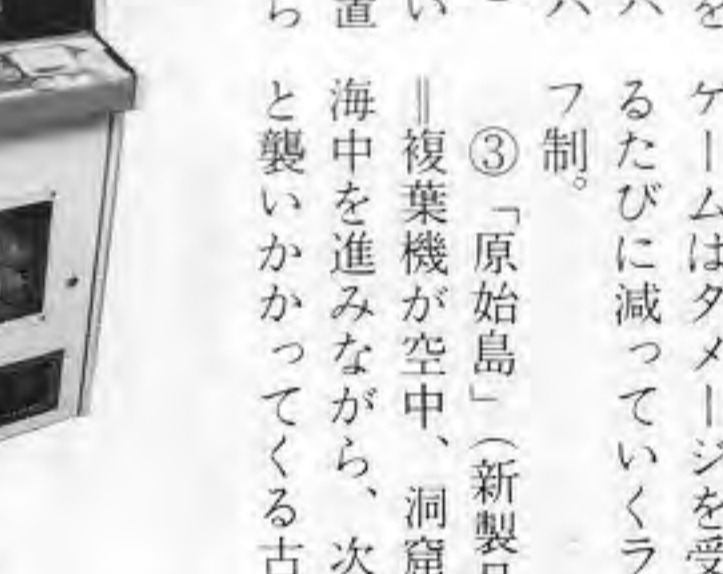 を
ケームはダメージを受
八
るたびに減っていくラ
フ制。
③「原始島」（新製品
い
＝複葉機が空中、洞窟
置
海中を進みながら、次
ら
と襲いかかってくる古